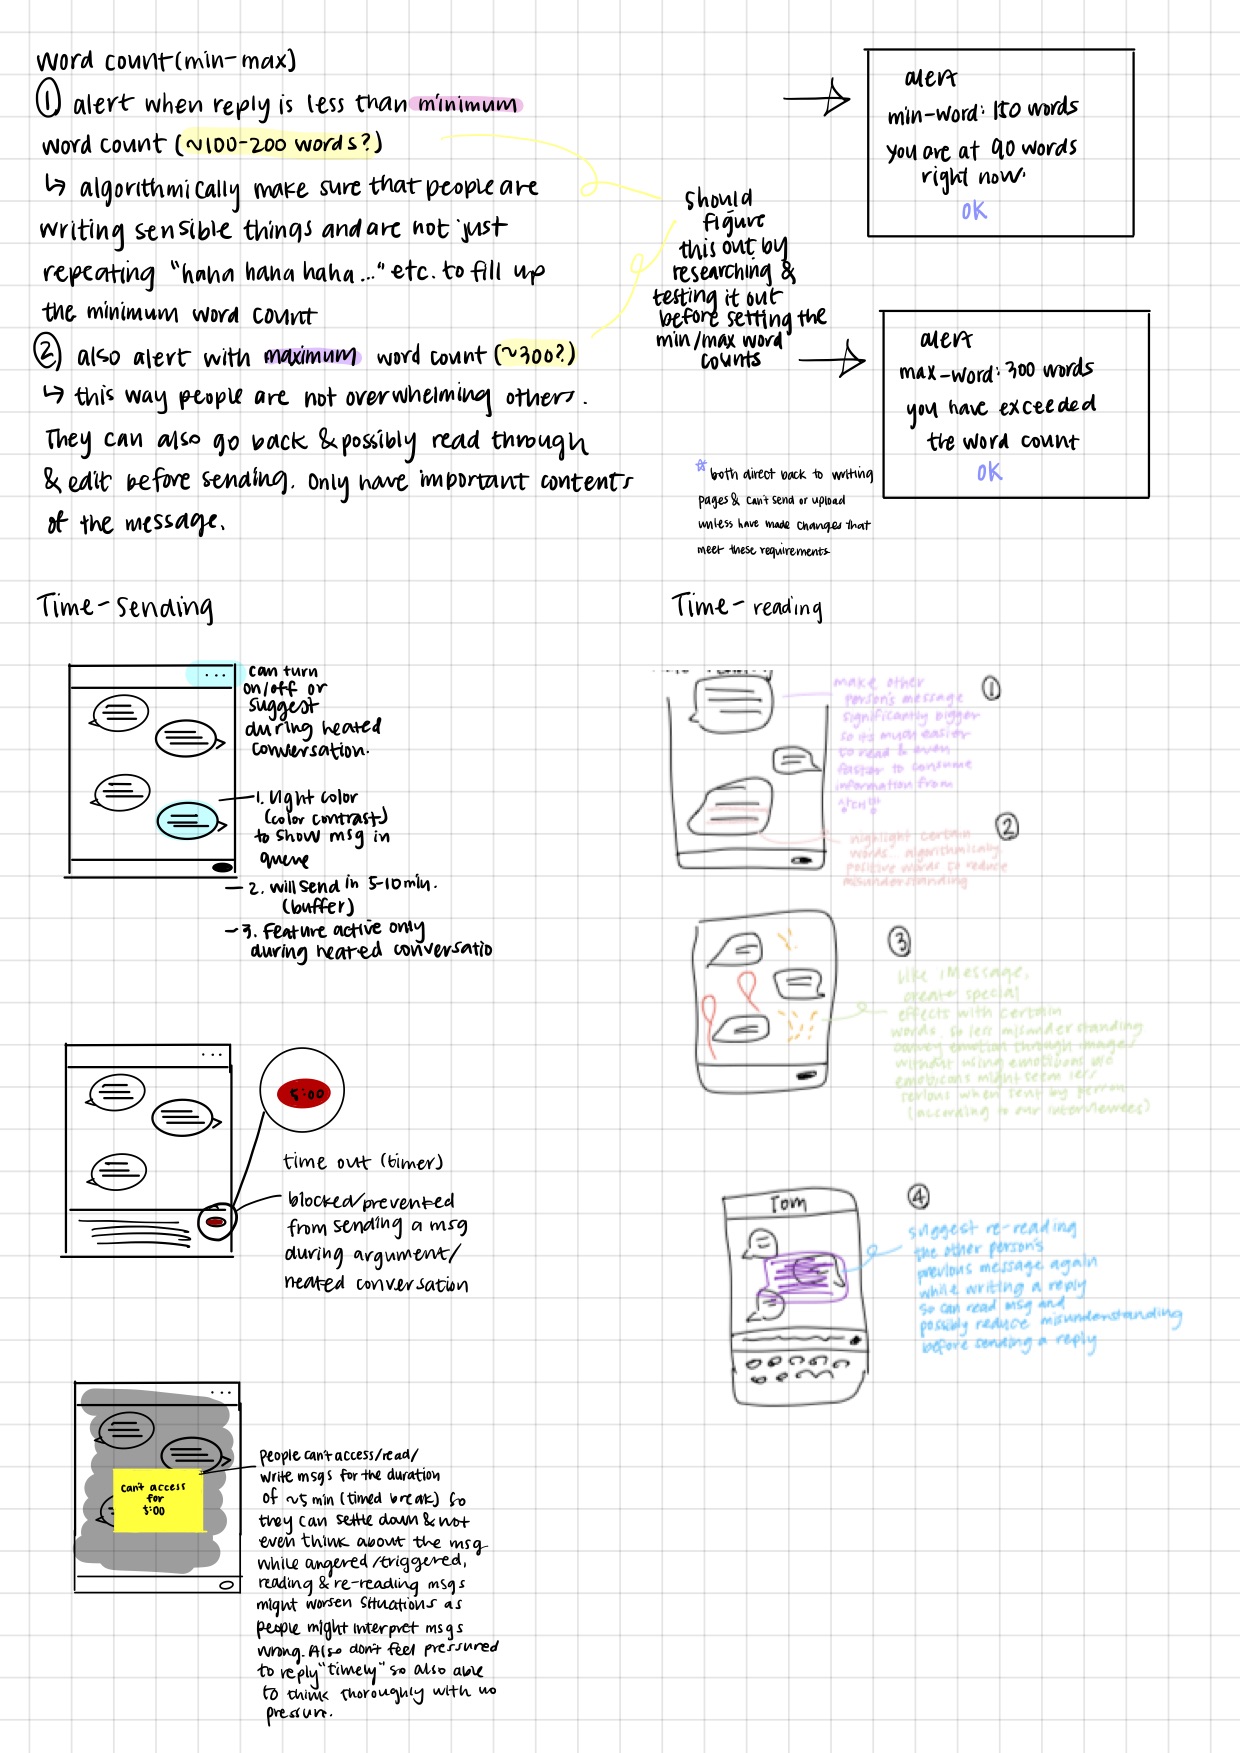 word count (min-max)
① alert when reply is less than minimum
word count (~100-200 words?)
↳ algorithmically make sure that people are
writing sensible things and are not just
repeating "haha haha haha..." etc. to fill up
the minimum word count
② also alert with maximum word count (~300?)
↳ this way people are not overwhelming others.
They can also go back & possibly read through
& edit before sending. Only have important contents
of the message.
should
figure
this out by
researching &
testing it out
before setting the
min/max word
counts
alert
min-word: 150 words
you are at 90 words
right now.
OK
alert
max-word: 300 words
you have exceeded
the word count
OK
☆ both direct back to writing
pages & can't send or upload
unless have made changes that
meet these requirements
Time-Sending
can turn
on/off or
suggest
during heated
conversation.
1. light color
(color contrast)
to show msg in
queue
2. will send in 5-10 min.
(buffer)
3. Feature active only
during heated conversatio
5:00
time out (timer)
blocked/prevented
from sending a msg
during argument/
heated conversation
can't access
for
5:00
People can't access/read/
write msgs for the duration
of ~5 min (timed break) so
they can settle down & not
even think about the msg
while angered/triggered,
reading & re-reading msgs
might worsen situations as
people might interpret msgs
wrong. Also don't feel pressured
to reply "timely" so also able
to think thoroughly with no
pressure.
Time-reading
①
make other
person's message
significantly bigger
so it's much easier
to read & even
faster to consume
information from
상대방
②
highlight certain
words... algorithmically
positive words to reduce
misunderstanding
③
Like iMessage,
create special
effects with certain
words, so less misunderstanding
convey emotion through images
without using emoticons b/c
emoticons might seem less
serious when sent by person
(according to our interviewees)
④
Tom
suggest re-reading
the other person's
previous message again
while writing a reply
so can read msg and
possibly reduce misunderstanding
before sending a reply